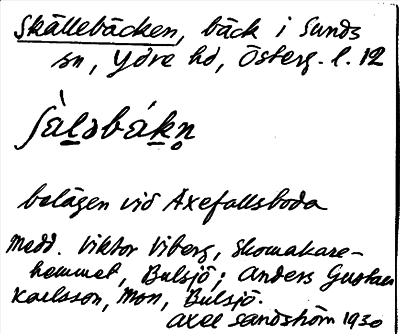 Skällebäcken, bäck i Sunds
sn, Ydre hd, Österg. l. 12
ʃàl̲əbák̲n̥
belägen vid Axefallsboda
Medd. Viktor Viberg, Skomakare-
hemmet, Bulsjö; Anders Gustav
Karlsson, Mon, Bulsjö.
Axel Sandström 1930